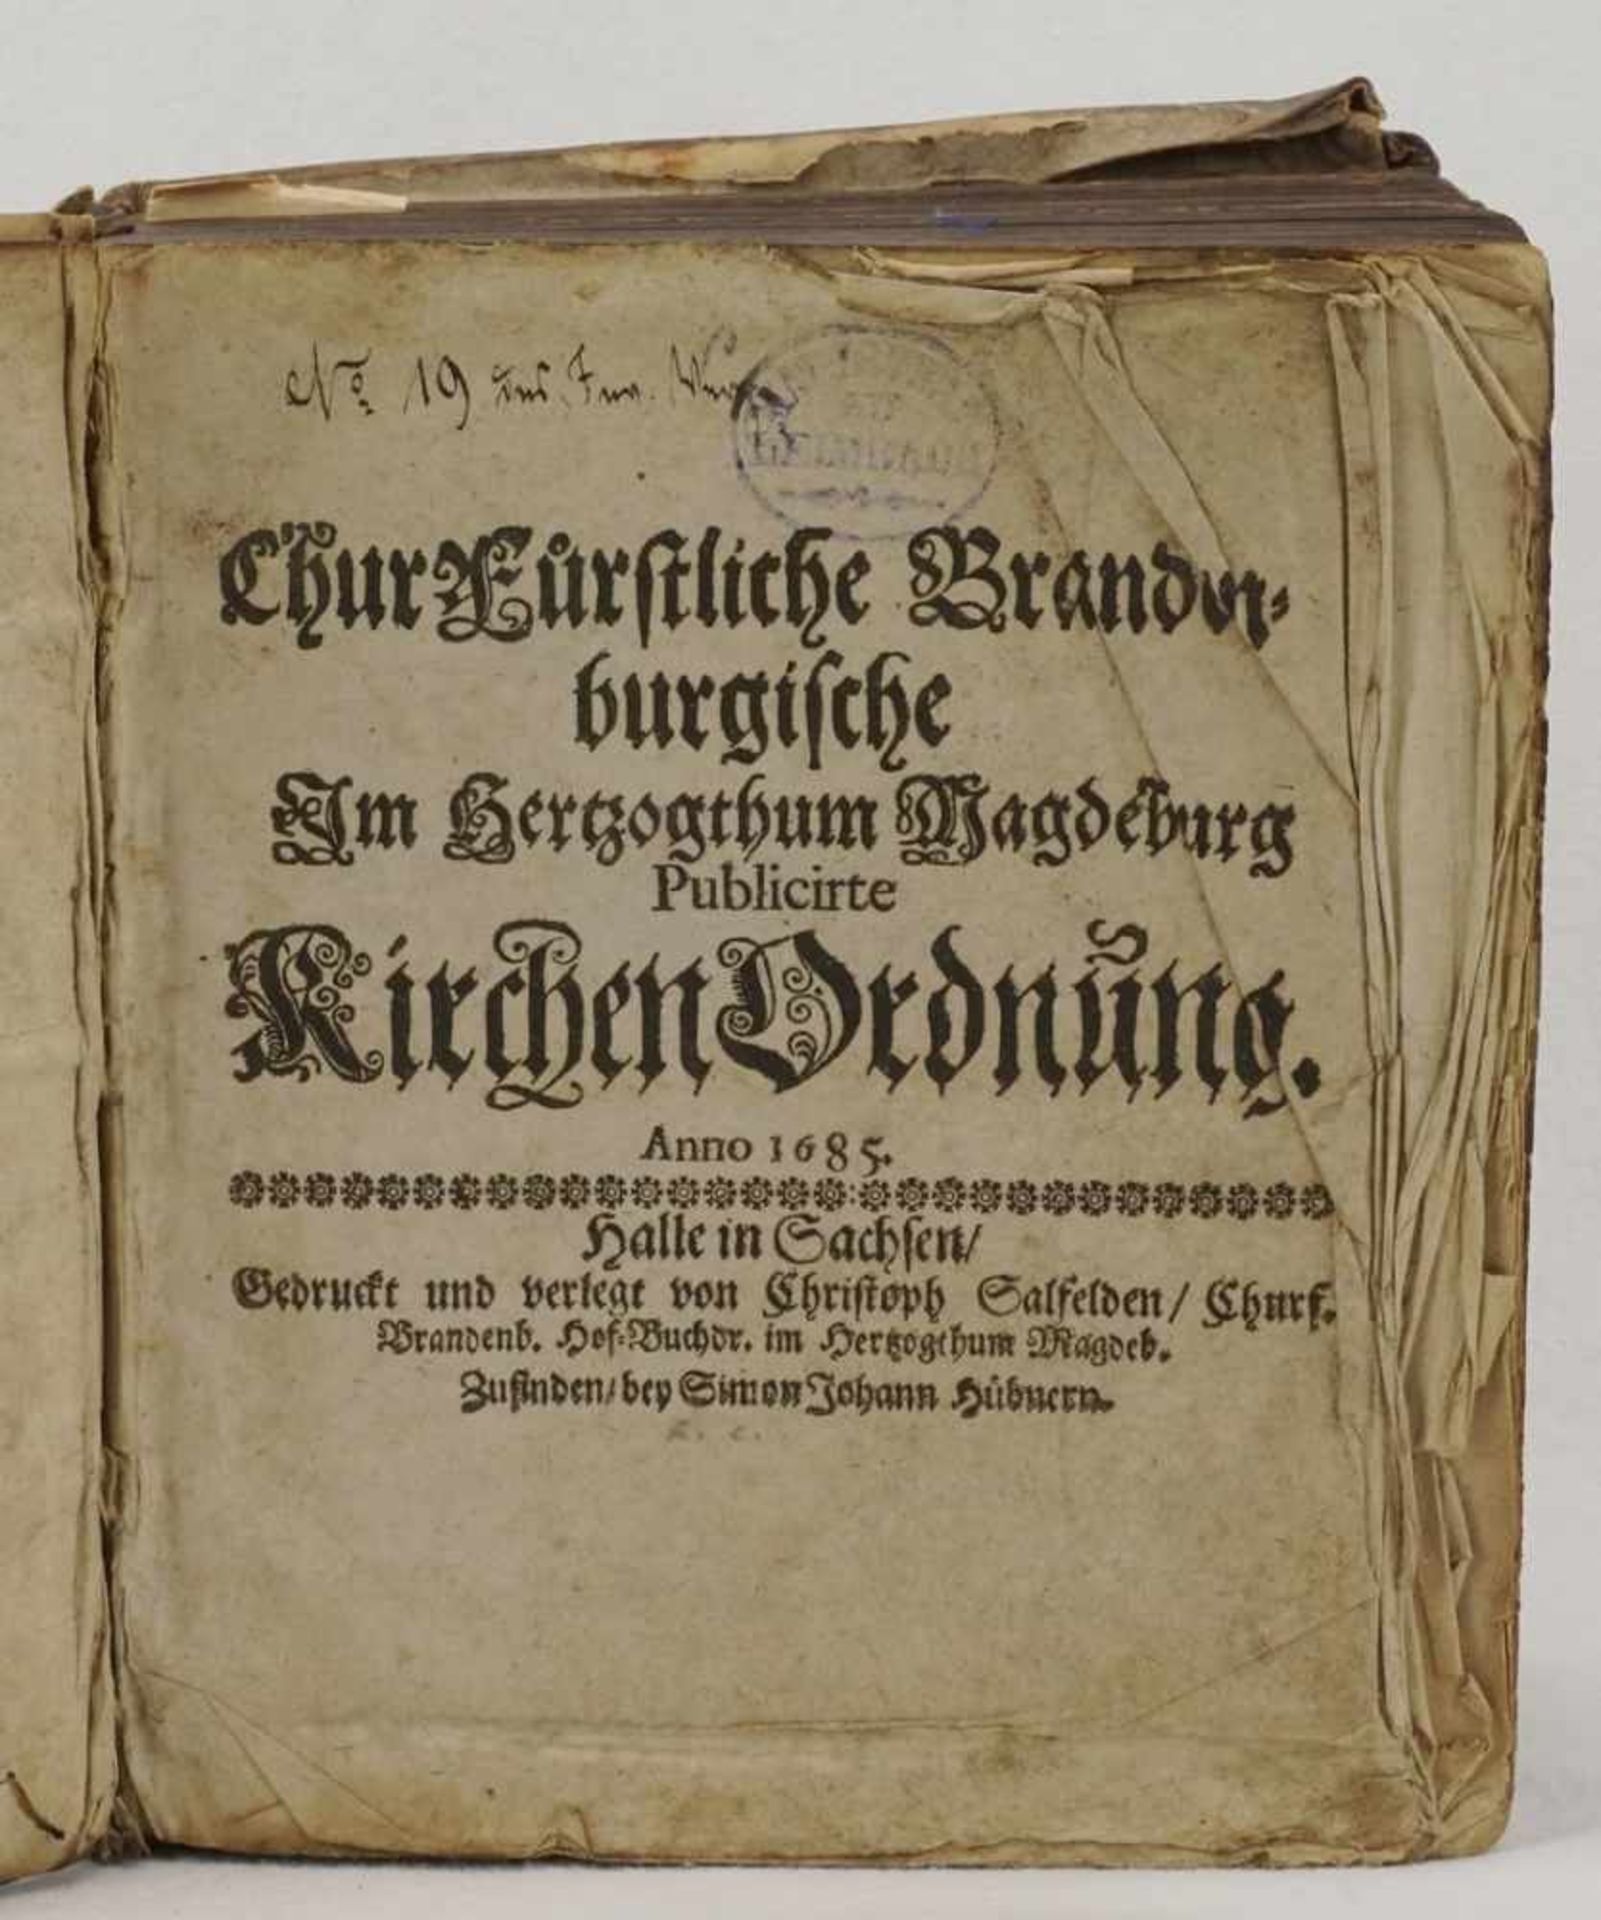 No. 19 des Inv.
ChurFürstliche Branden-
burgische
Im Hertzogthum Magdeburg
Publicirte
KirchenOrdnung.
Anno 1685.
Halle in Sachsen/
Gedruckt und verlegt von Christoph Salfelden/ Churf.
Brandenb. Hof-Buchdr. im Hertzogthum Magdeb.
Zufinden/ bey Simon Johann Hübnern.